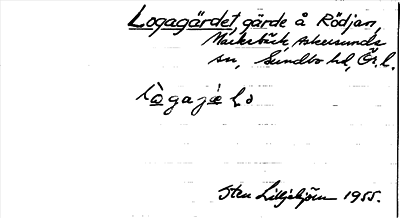 Logagärdet, gärde å Rödjan,
Märkebäck, Askersunds
sn, Sundbo hd, Ör. l.
Sten Lilljebjörn 1955.